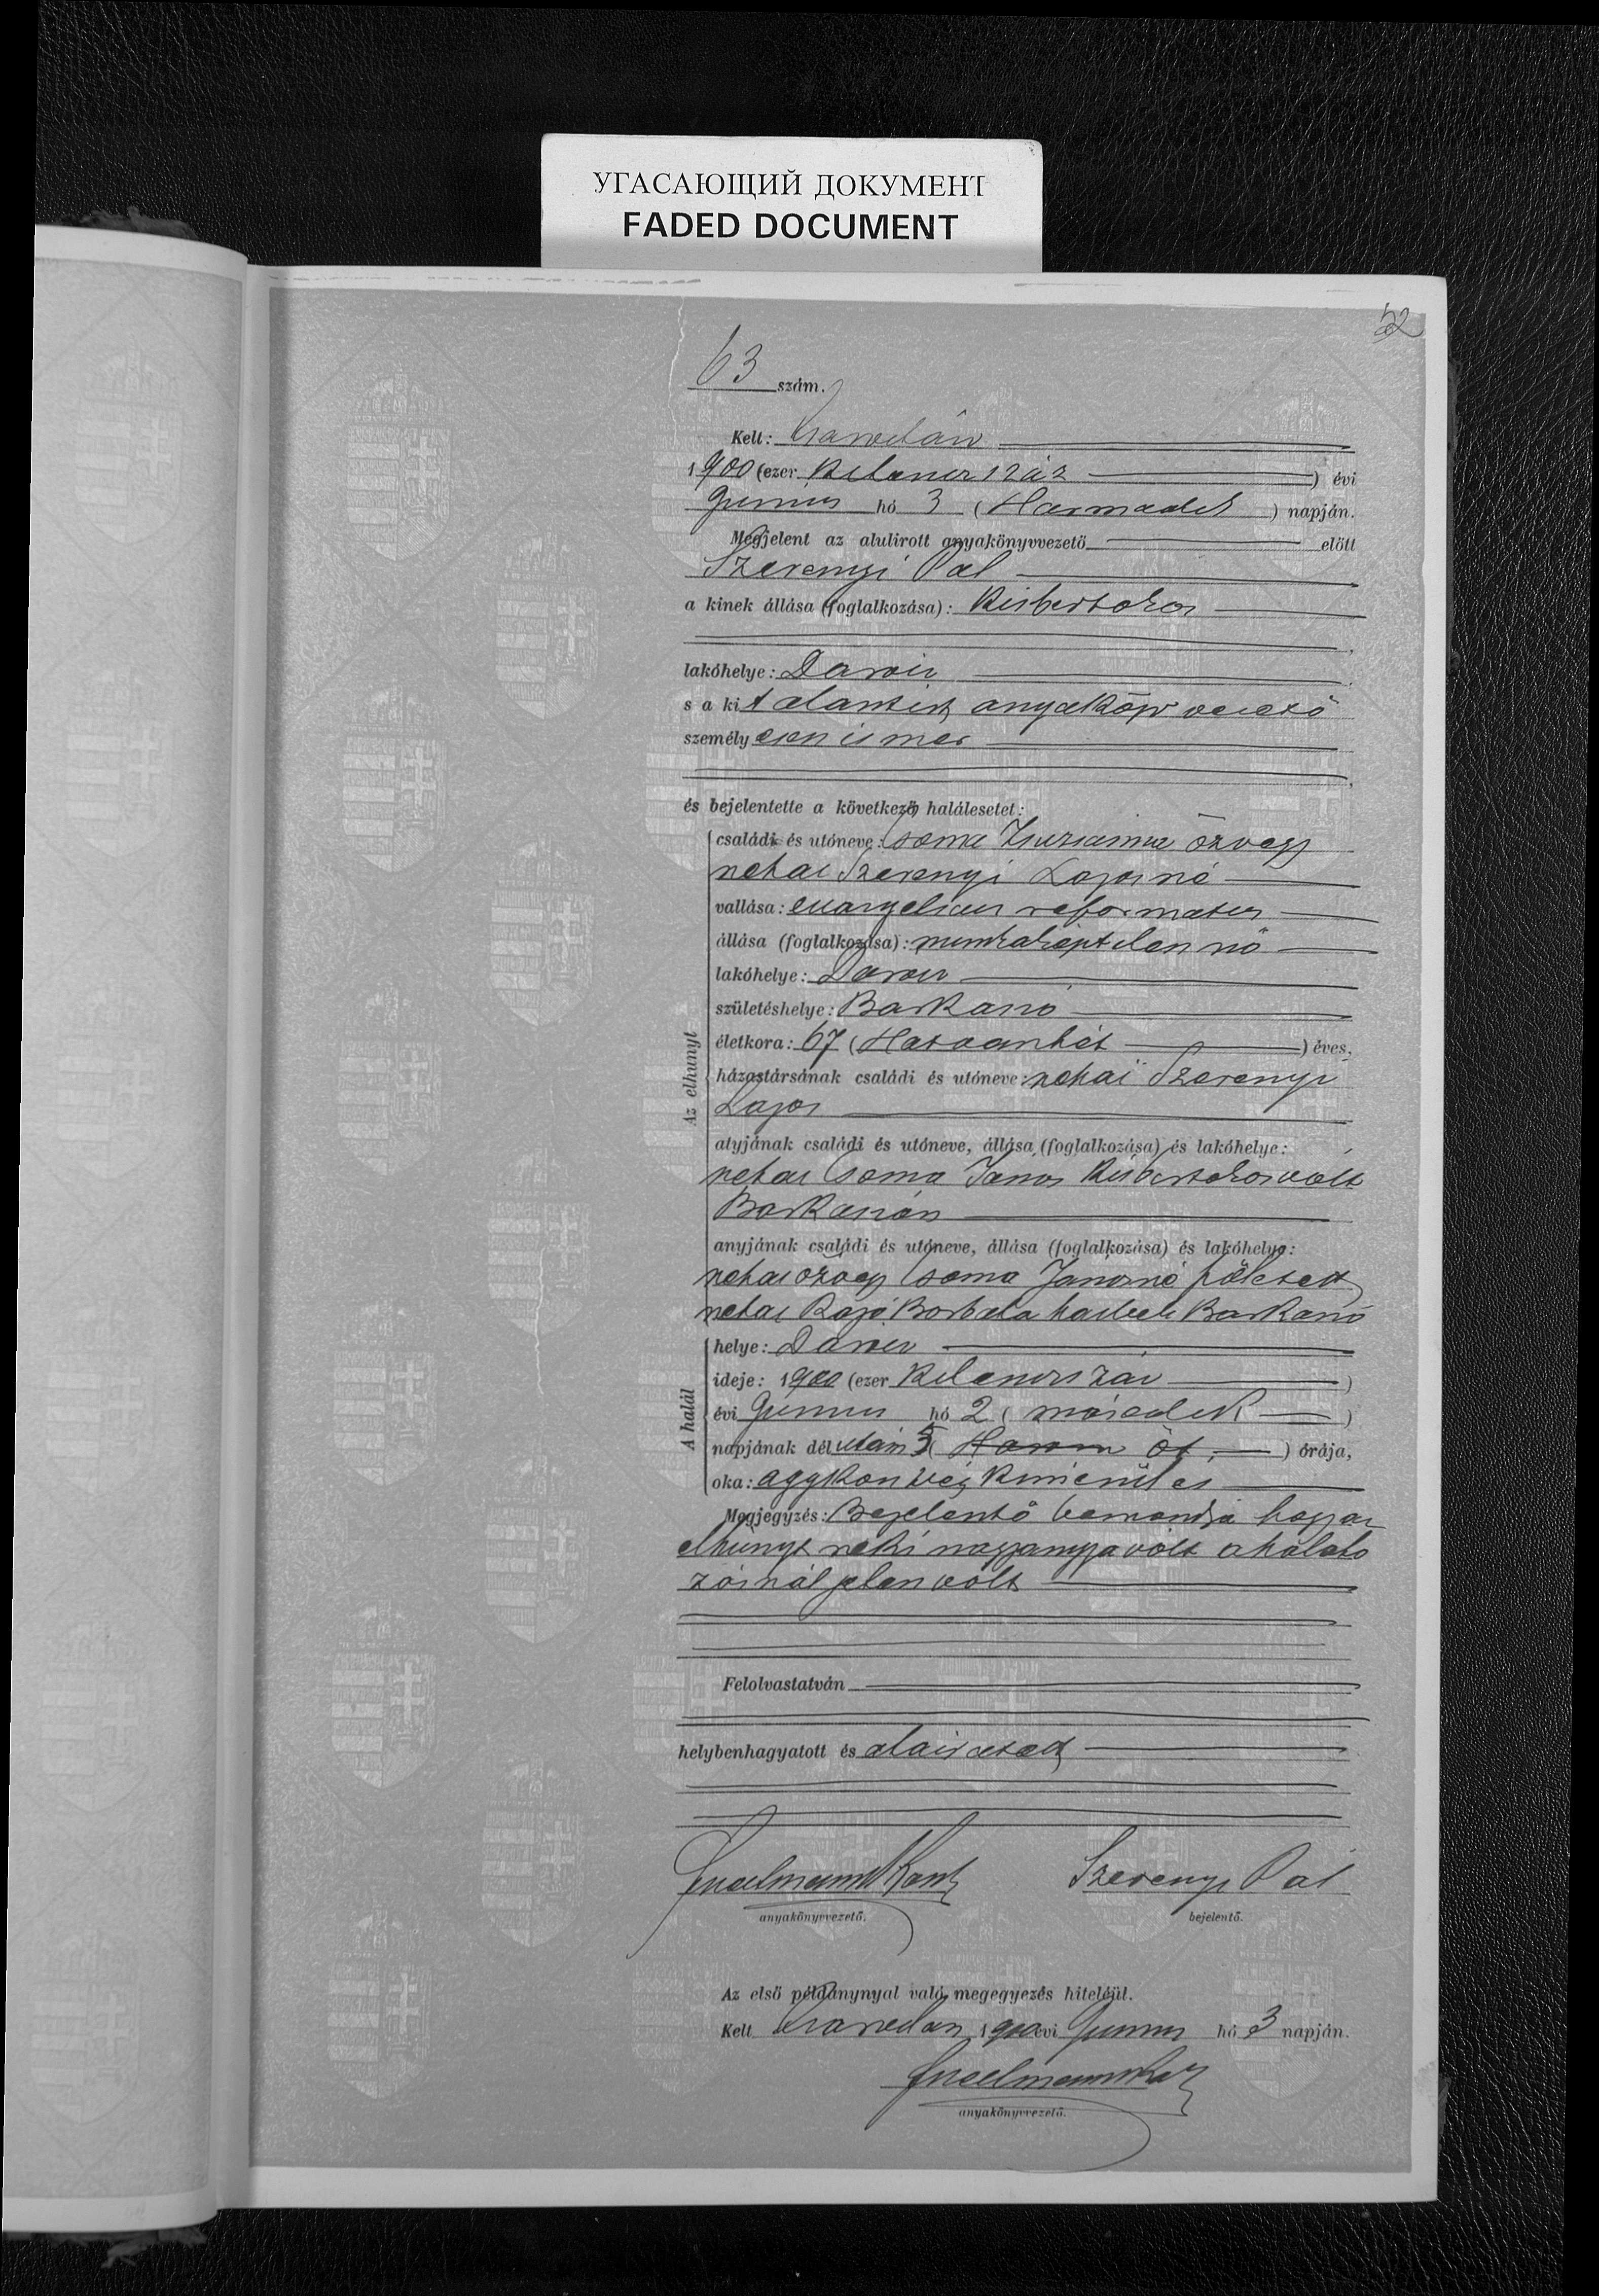 УГАСАЮЩИЙ ДОКУМЕНТ
FADED DOCUMENT
52
63 szám.
Kelt:
1900 (ezer kilencz száz) évi
Junius hó 3 (Harmadik) napján.
Megjelent az alulirott anyakönyvvezető előtt
Szerenyi Pál
a kinek állása (foglalkozása): Kisbirtokos
lakóhelye: Darócz
s a kit alantirt anyakönyvvezető
személyesen ismer
és bejelentette a következő halálesetet:
Az elhunyt
családi és utóneve: Csoma Zsuzsánna özvegy
néhai Szerenyi Lajosné
vallása: evangelicus reformatus
állása (foglalkozása): munkaképtelen nő
lakóhelye: Darócz
születéshelye: Barkaszó
életkora: 67 (Hatvanhét) éves,
házastársának családi és utóneve: néhai Szerenyi
Lajos
atyjának családi és utóneve, állása (foglalkozása) és lakóhelye:
néhai Csoma János Kisbirtokos volt
Barkaszón
anyjának családi és utóneve, állása (foglalkozása) és lakóhelye:
néhai özvegy Csoma Jánosné született
néhai Borbála Barkaszó
A halál
helye: Darócz
ideje: 1900 (ezer Kilenczszáz)
évi Junius hó 2 (második)
napjának délután 5 (Három öt) órája,
oka: aggkori végkimerülés
Megjegyzés: Bejelentő bemondja hogy az
elhunyt neki nagyanyja volt a haláto
zásnál jelen volt
Felolvastatván
helybenhagyatott és aláiratott
anyakönyvvezető.
Szerenyi Pál
bejelentő.
Az első példánynyal való megegyezés hiteléül.
Kelt 1900 évi Junius hó 3 napján.
anyakönyvvezető.